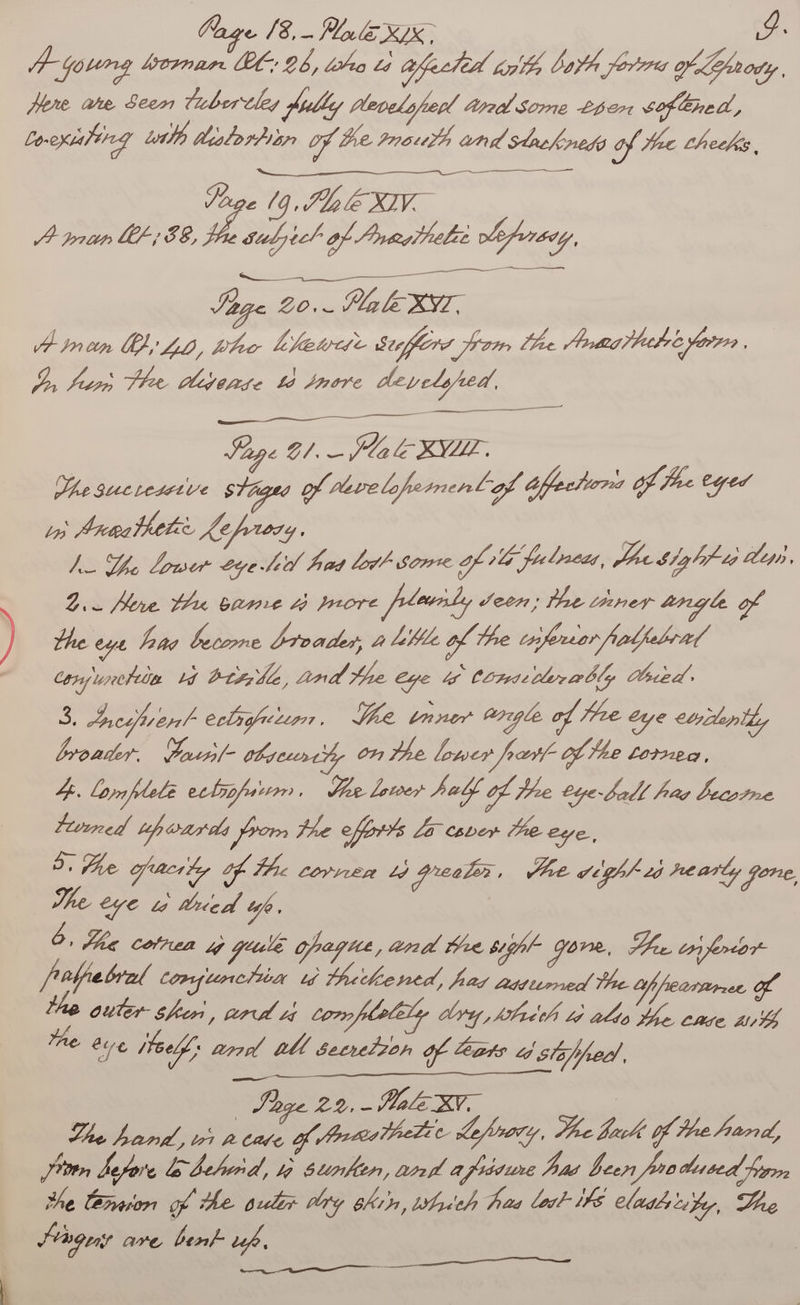 Page 18. - Plate XIX. 9.
A young woman Æt: 26, who is affected with both forms of Leprosy.
Here are seen tubercles fully developed and some even softened,
Co-existing with distortion of the mouth and slackness of the cheeks.
Page 19. Plate XIV.
A man Æt; 38, the subject of Anæsthetic Leprosy.
Page 20. - Plate XVI.
A man Æt; 40, who likewise suffers from the Anæsthetic form.
In him the disease is more developed.
Page 21. - Plate XVIII.
The successive stages of developement of affections of the eyes
in Anæsthetic Leprosy.
1. - The lower eye-lid has lost some of its fulness, The sight is dim.
2. - Here the same is more plainly seen; the inner angle of
the eye has become broader, a little of the inferior palpebral
conjunctiva is visible, and the eye is considerably dried.
3. Incipient ectropium. The inner angle of the eye evidently
broader. Faint obscurity on the lower part of the cornea.
4. Complete ectropium. The lower half of the eye-ball has become
turned upwards from the efforts to cover the eye.
5. The opacity of the cornea is greater. The sight is nearly gone,
The eye is dried up.
6. The cornea is quite opaque, and the sight gone. The inferior
palpebral conjunctiva is thickened, has assumed the appearance of
the outer skin, and is completely dry, which is also the case with
the eye itself; and all secretion of tears is stopped.
Page 22. - Plate XV.
The hand, in a case of Anæsthetic Leprosy. The back of the hand,
from before to behind, is sunken, and a fissure has been produced from
the tension of the outer dry skin, which has lost its elasticity, The
fingers are bent up.